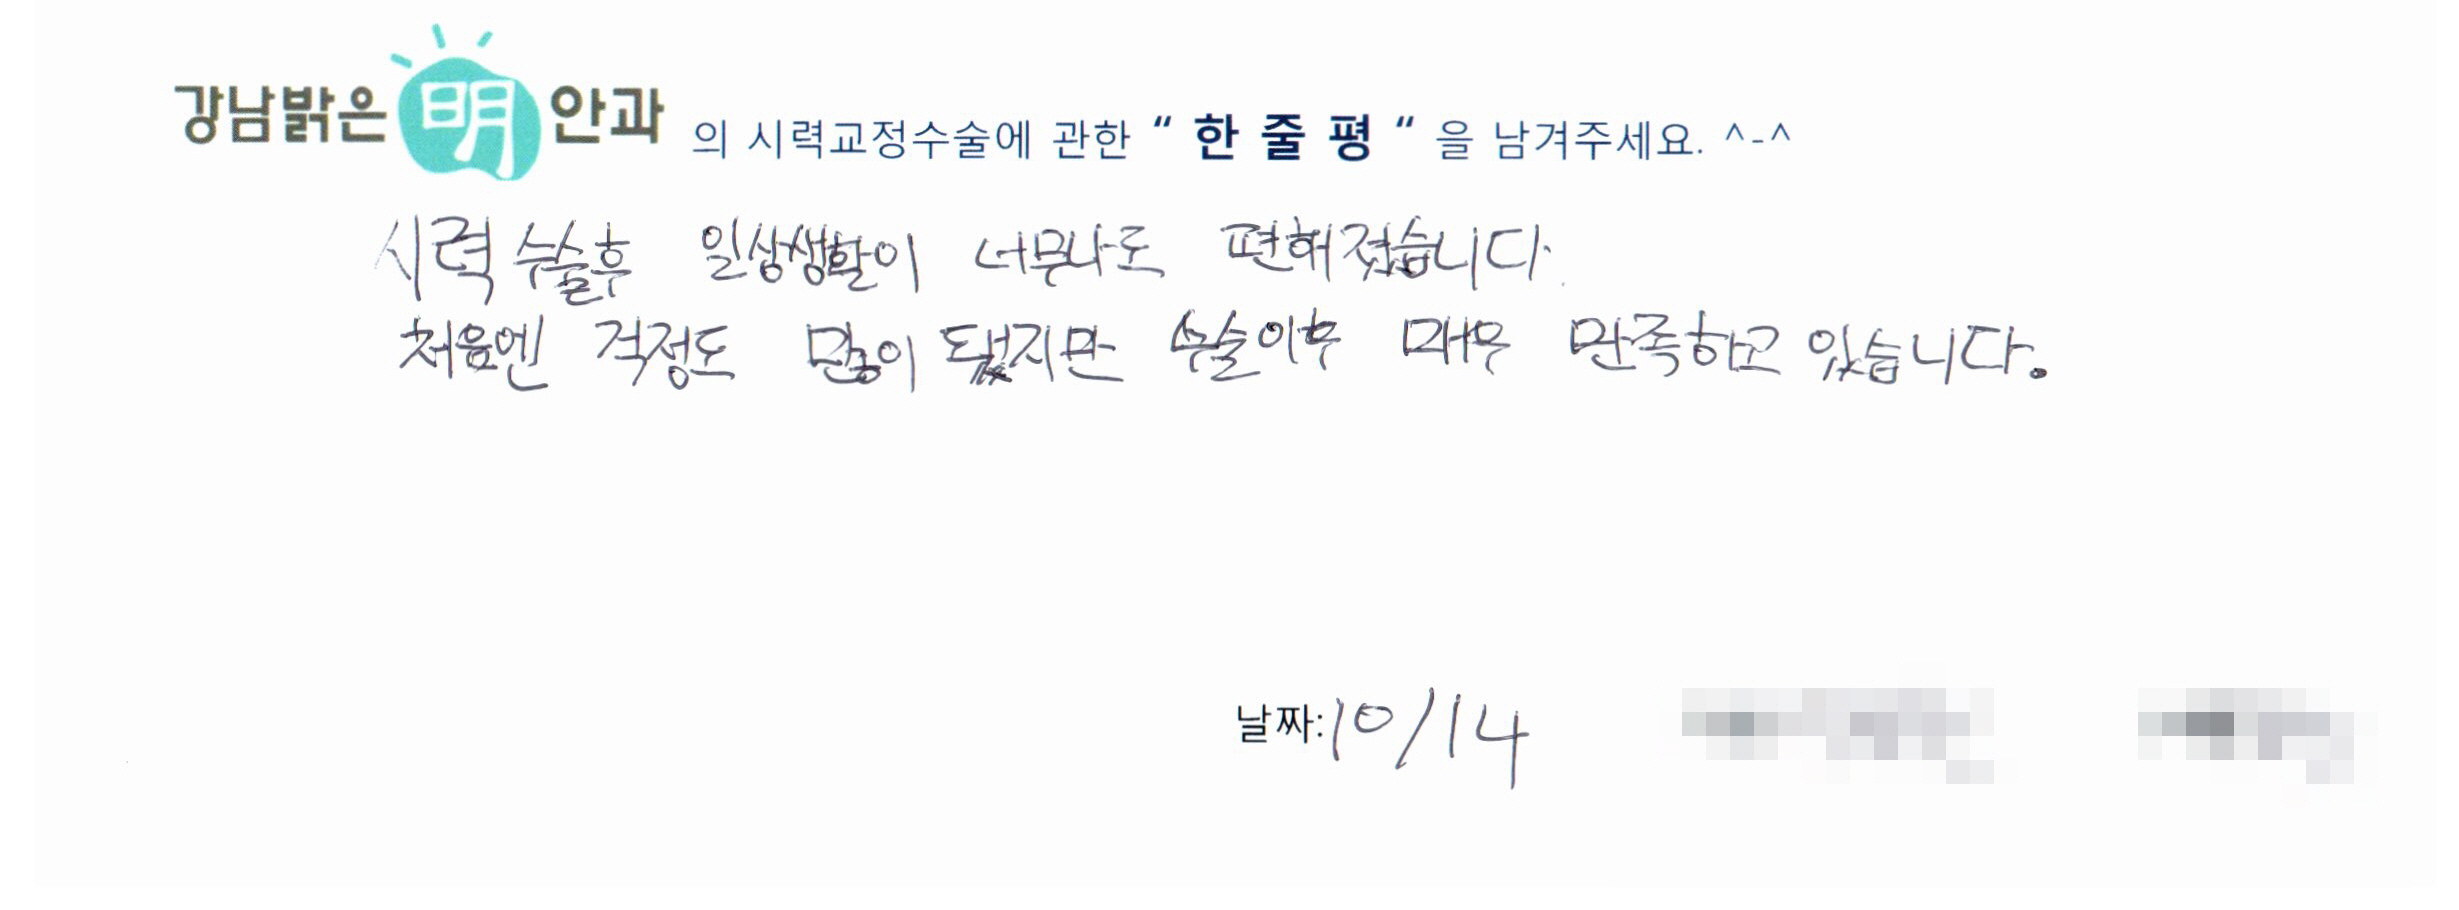 강남밝은 明 안과 의 시력교정수술에 관한 “ 한 줄 평 “ 을 남겨주세요. ^-^
시력 수술후 일상생활이 너무나도 편해졌습니다.
처음엔 걱정도 많이 됐지만 수술이후 매우 만족하고 있습니다.
날짜: 10/14